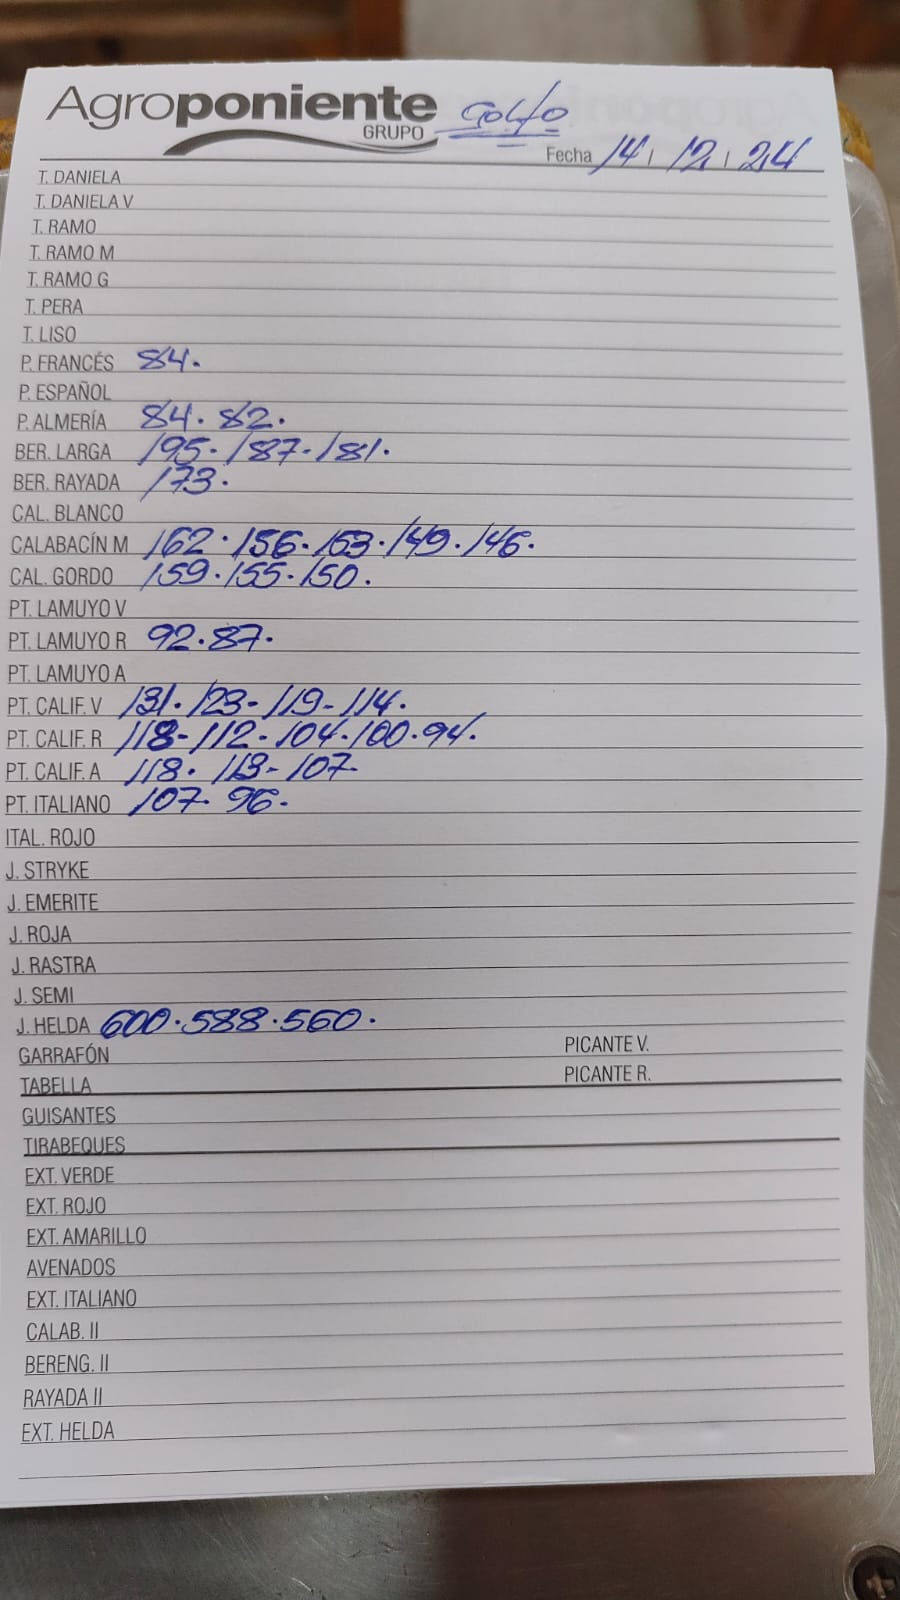 Agroponiente
GRUPO
Golfo
Fecha 14 / 12 / 24
T. DANIELA
T. DANIELA V
T. RAMO
T. RAMO M
T. RAMO G
T. PERA
T. LISO
P. FRANCÉS 84.
P. ESPAÑOL
P. ALMERÍA 84. 82.
BER. LARGA 195. 187. 181.
BER. RAYADA 173.
CAL. BLANCO
CALABACÍN M 162. 156. 153. 149. 146.
CAL. GORDO 159. 155. 150.
PT. LAMUYO V
PT. LAMUYO R 92. 87.
PT. LAMUYO A
PT. CALIF. V 131. 123- 119- 114.
PT. CALIF. R 118- 112- 104. 100. 94.
PT. CALIF. A 118. 113- 107.
PT. ITALIANO 107. 96.
ITAL. ROJO
J. STRYKE
J. EMERITE
J. ROJA
J. RASTRA
J. SEMI
J. HELDA 600. 588. 560.
GARRAFÓN PICANTE V.
TABELLA PICANTE R.
GUISANTES
TIRABEQUES
EXT. VERDE
EXT. ROJO
EXT. AMARILLO
AVENADOS
EXT. ITALIANO
CALAB. II
BERENG. II
RAYADA II
EXT. HELDA